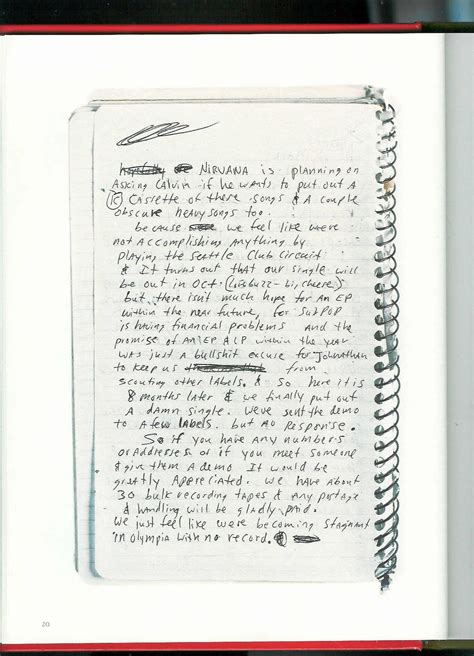 NIRVANA is planning on
Asking Calvin if he wants to put out a
(K) Cassette of there songs & A couple
obscure heavy songs too.
because we feel like were
not accomplishing anything by
playing the Seattle Club Circuit
& It turns out that our single will
be out in Oct. (Love buzz - Li, cheers)
but there isnt much hope for AN EP
within the near future, for SubPOP
is having financial problems and the
promise of AN EP & LP within the year
was just a bullshit excuse for Johnathan
to keep us from
scouting other labels. & so here it is
8 months later & we finally put out
a damn single. Weve sent the demo
to a few labels. but no Response.
So if you have any numbers
or addresses or if you meet someone
& give them a demo It would be
greatly Appreciated. we have about
30 bulk recording tapes & any postage
& handling will be gladly paid.
we just feel like were becoming stagnant
in olympia with no record.
20